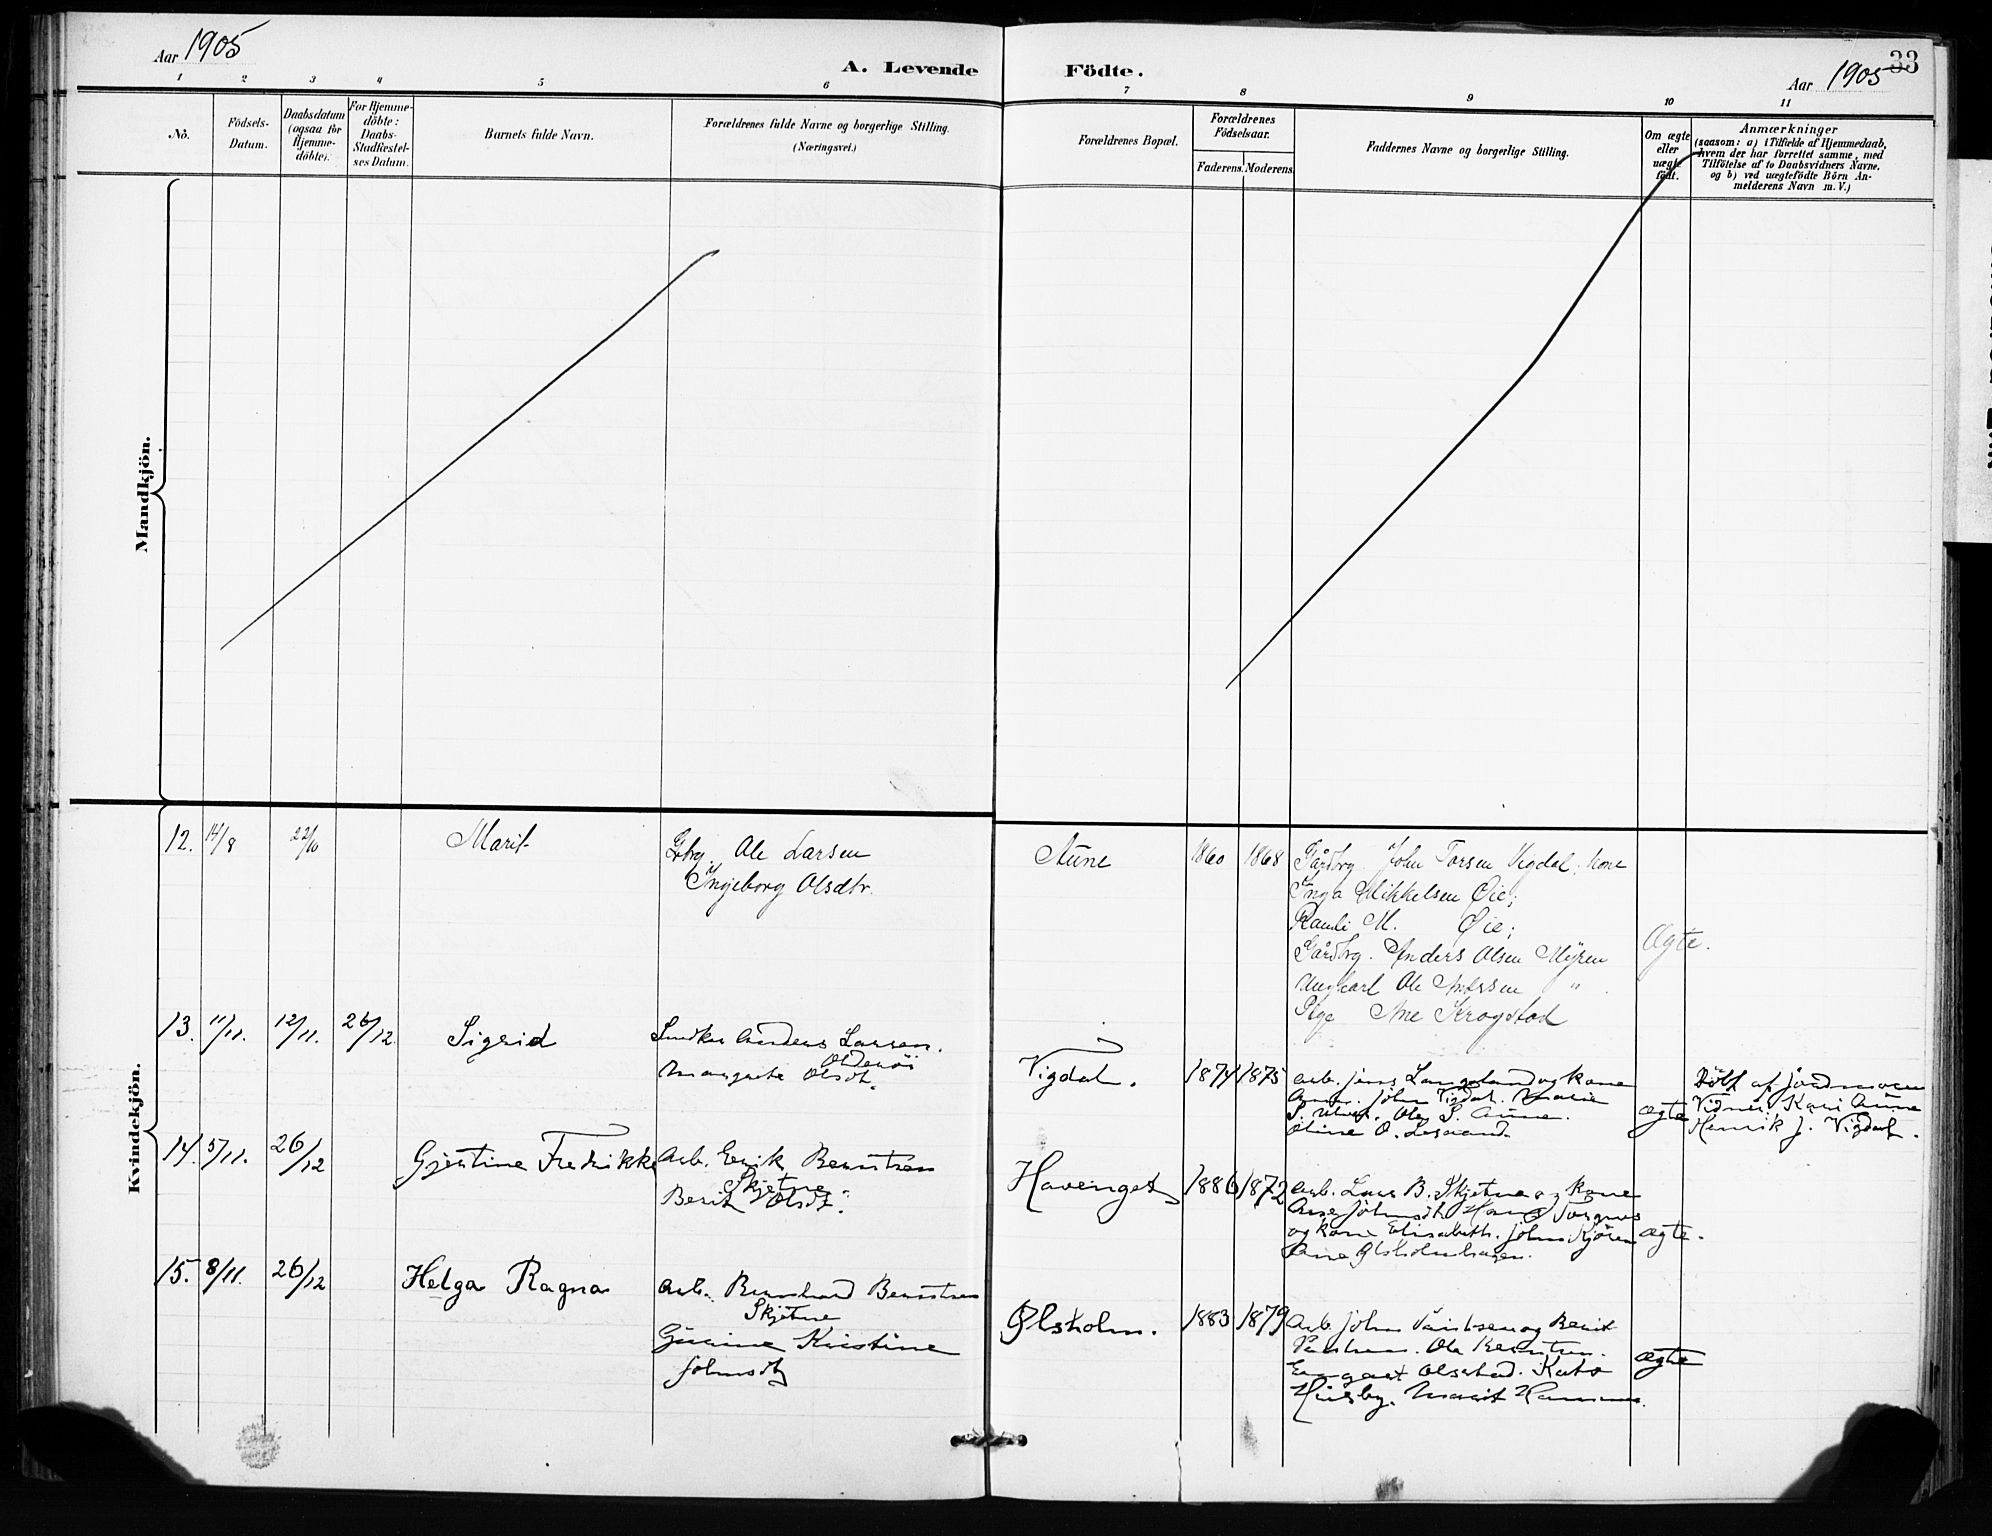 Aar 1905
A. Levende Födte.
33
Aar 1905
1 2 3 4 5 6 7 8 9 10 11
No.
Födsels-Datum.
Daabsdatum (ogsaa for Hjemme-döbte).
For Hjemme-döbte: Daabs-Stadfæstel-ses Datum.
Barnets fulde Navn.
Forældrenes fulde Navne og borgerlige Stilling.
(Næringsvei.)
Forældrenes Bopæl.
Forældrenes Födselsaar.
Faderens. Moderens.
Faddernes Navne og borgerlige Stilling.
Om ægte eller uægte födt.
Anmærkninger
(saasom: a) i Tilfælde af Hjemmedaab,
hvem der har forrettet samme, med
Tilföielse af to Daabsvidners Navne.
og b) ved uægtefödte Börn An-
melderens Navn m. V.)
Mandkjön.
Kvindekjön.
12. 14/8 22/10 Marit
Gbrg. Ole Larsen
Ingeborg Olsdtr.
Aune 1860 1868
Gårdbrg. John Torsen Vigdal, kone
Inga Mikkelsen Øie;
M. Øie;
Gårdbrg. Anders Olsen Myren
Ungkarl Ole Andersen "
Pige Ane Krogstad
Ægte.
13. 11/11. 12/11. 26/12. Sigrid
Anders Larsen.
Oldenöi
Margrete Olsdt.
Vigdal. 1874 1875
Arb. Jens Langeland og kone
John Vigdal. Marie
Ole S. Aune.
Oline O.
ægte
Döbt af Jordmoren
Vidner: Kari Aune
Henrik J. Vigdal.
14. 5/11. 26/12 Gjertine Fredrikke
Arb. Eerik Berntsen
Skjetne
Berit Olsdt.
Havenget 1886 1872
Arb. Lars B. Skjetne og kone
Ane Johnsdt. Hans
og kone Elisabeth. John
Ane Ølsholmhagen.
ægte.
15. 8/11. 26/12 Helga Ragna
Arb. Bernhard Berntsen
Skjetne
Kristine
Johnsdt
Ølsholm. 1883 1879
Arb John og Berit
Ole Berntsen.
Olsstad.
Huseby. Marit
ægte